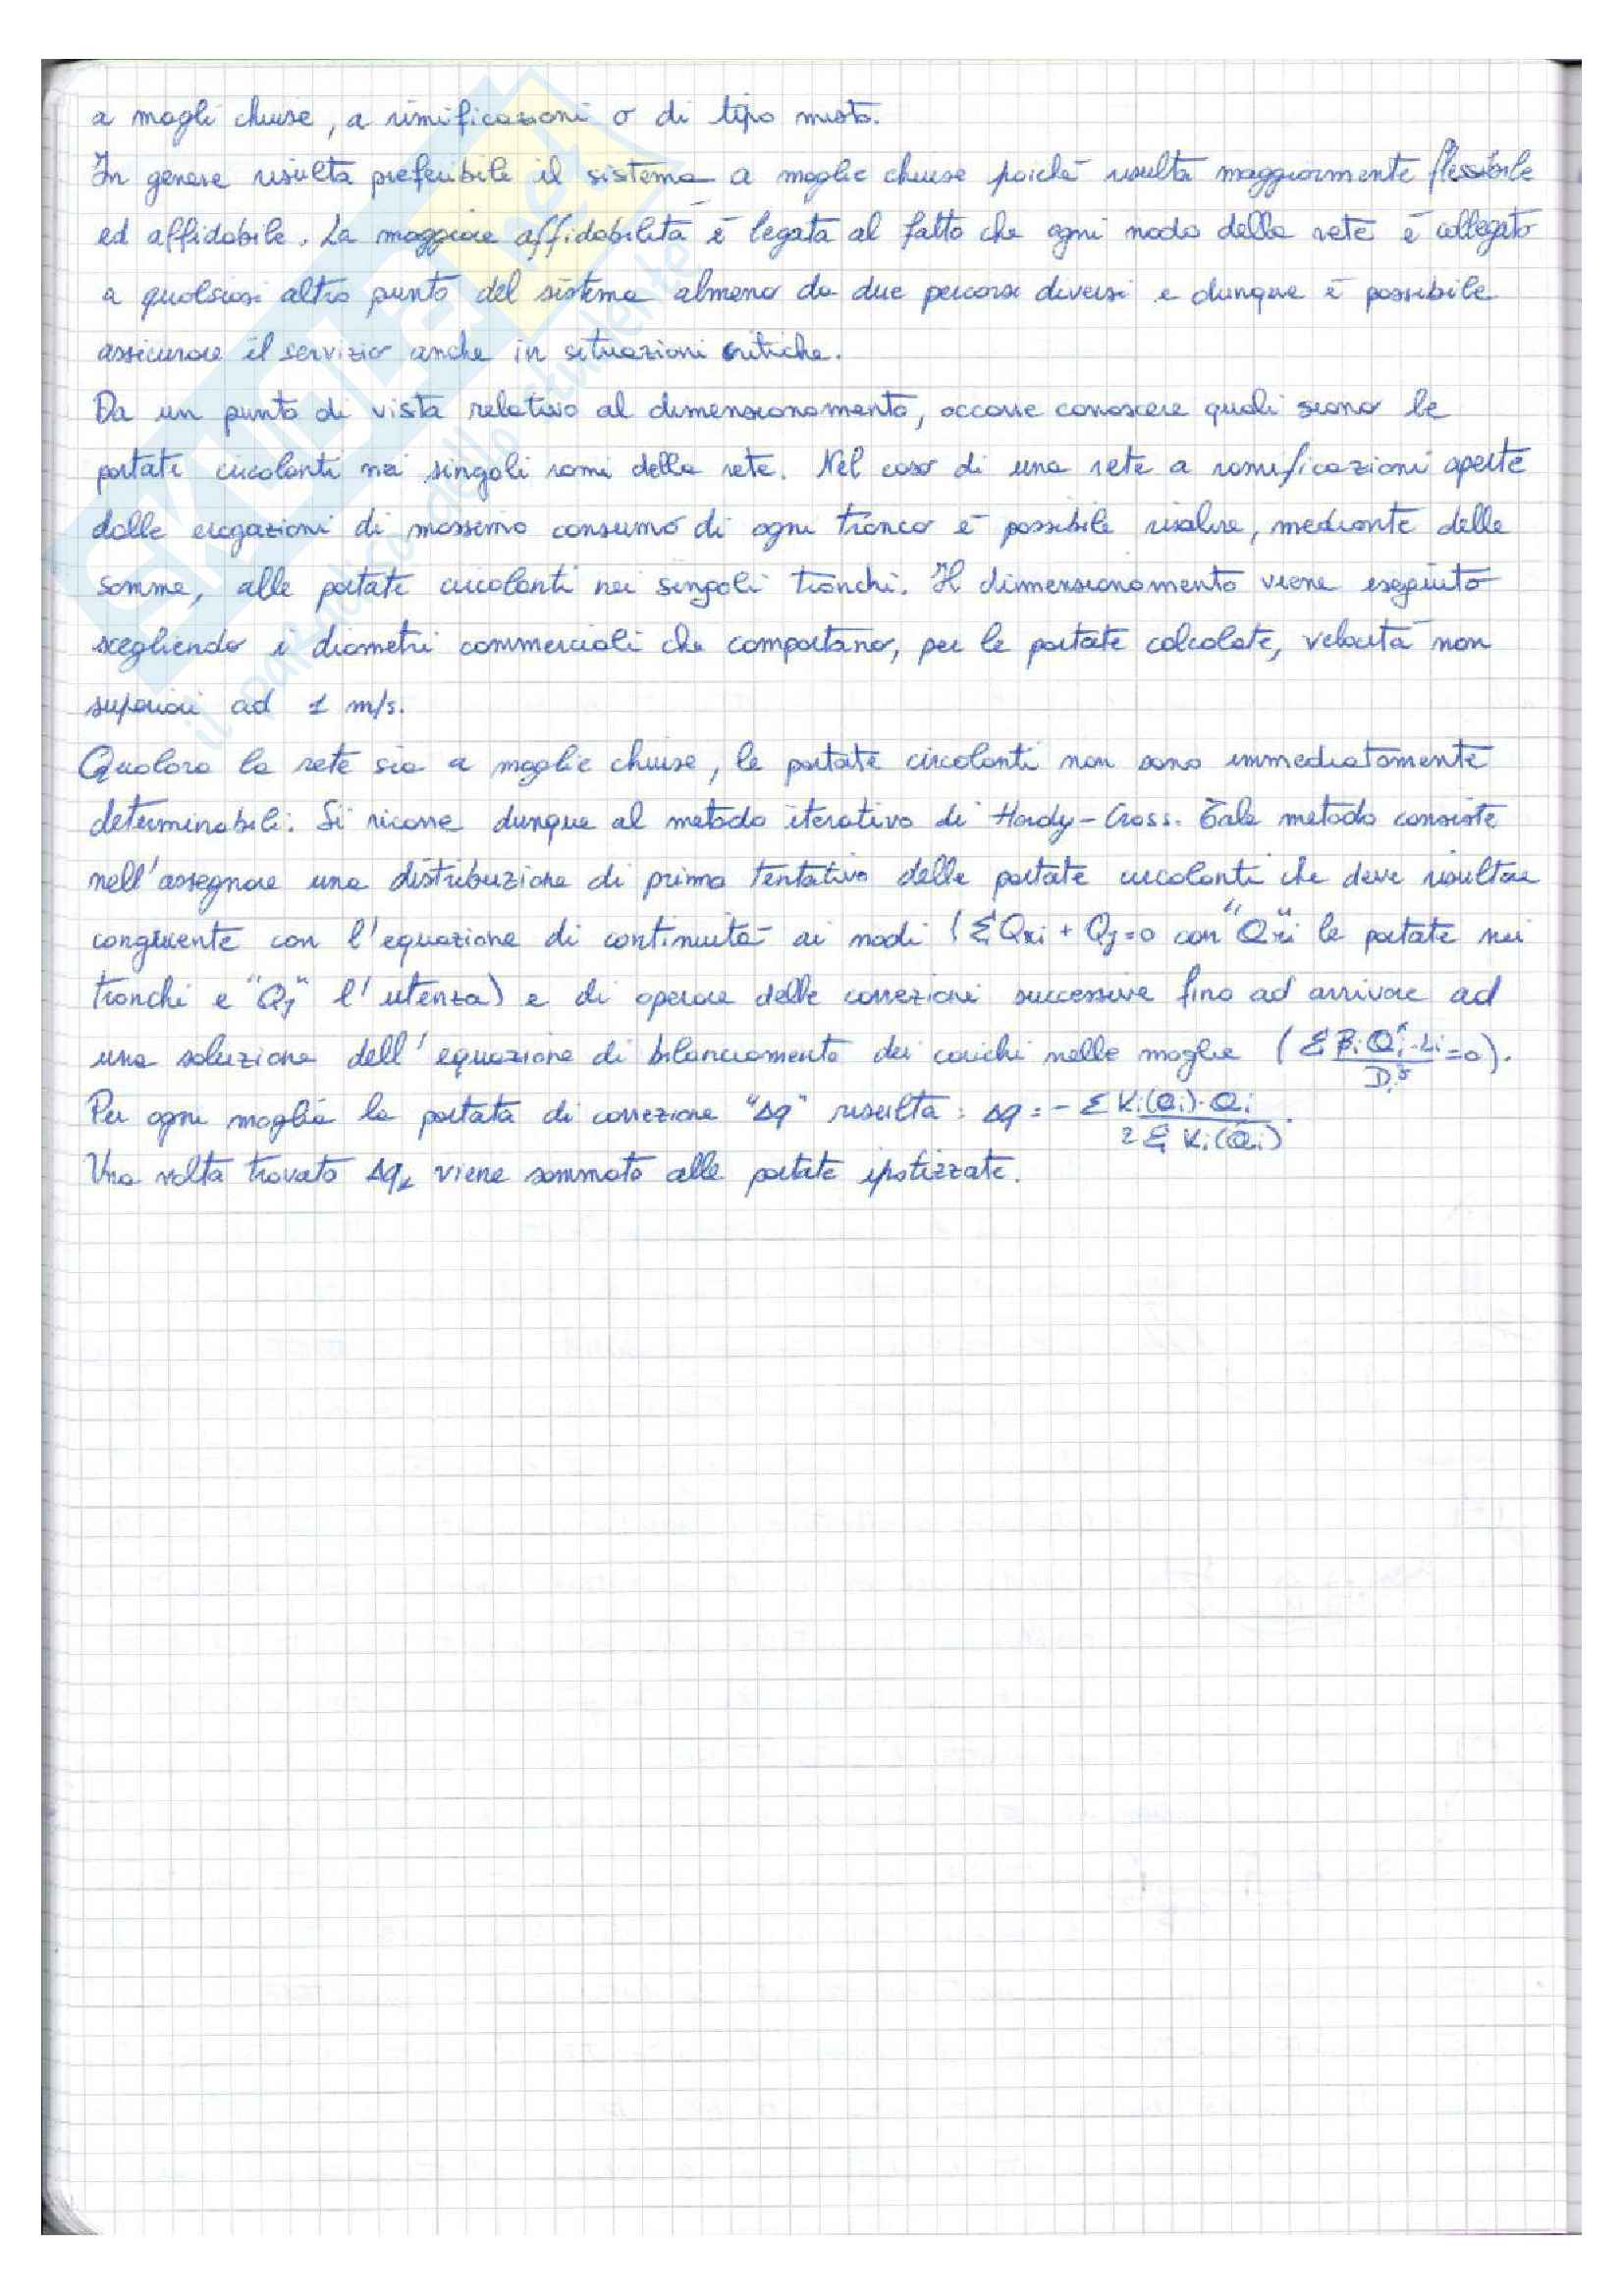 a magli chiuse, a rimificazioni o di tipo misto.
In genere risulta preferibile il sistema a maglie chiuse poiché risulta maggiormente flessibile
ed affidabile. La maggiore affidabilità è legata al fatto che ogni nodo della rete è collegato
a qualsiasi altro punto del sistema almeno da due percorsi diversi e dunque è possibile
assicurare il servizio anche in situazioni critiche.
Da un punto di vista relativo al dimensionamento, occorre conoscere quali siano le
portate circolanti nei singoli rami della rete. Nel caso di una rete a ramificazioni aperte
dalle erogazioni di massimo consumo di ogni tronco è possibile risalire, mediante delle
somme, alle portate circolanti nei singoli tronchi. Il dimensionamento viene eseguito
scegliendo i diametri commerciali che comportano, per le portate calcolate, velocità non
superiori ad 1 m/s.
Qualora la rete sia a maglie chiuse, le portate circolanti non sono immediatamente
determinabili. Si ricorre dunque al metodo iterativo di Hardy-Cross. Tale metodo consiste
nell'assegnare una distribuzione di primo tentativo delle portate circolanti che deve risultare
congruente con l'equazione di continuità ai nodi (ΣQxi + Qj=0 con "Qxi" le portate nei
tronchi e "Qj" l'utenza) e di operare delle correzioni successive fino ad arrivare ad
una soluzione dell'equazione di bilanciamento dei carichi nelle maglie
Per ogni maglia la portata di correzione "Δq" risulta: Δq = - Σ Ki(Qi)·Qi / 2 Σ Ki(Qi).
Una volta trovato Δq, viene sommato alle portate ipotizzate.
SKUOLA.net
il paradiso dello studente